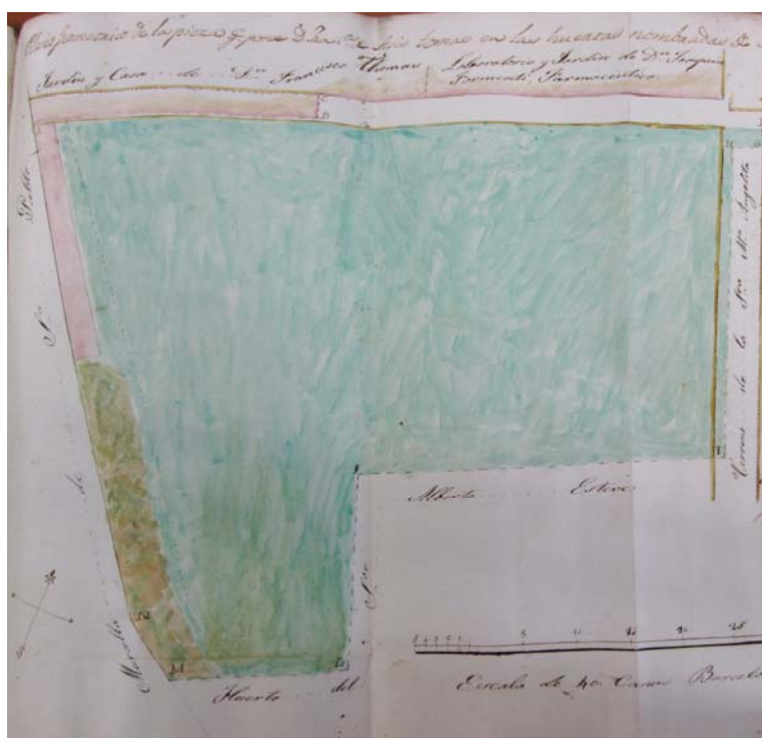 de la pieza q.e posee D.n Fran.co de Sisto Tomas en las huertas nombradas de S.
Jardin y Casa de D.n Francisco Thomas
Laboratorio y Jardin de D.n Joaquin
Formenti, Farmaceutico.
C
B
Pablo
S.n
de
Muralla
Terreno de la S.ra M.a Angelita
I
Alberto Esteve
S.or
N
M
L
Huerto del
5
Escala de 40 Canas Barcelo